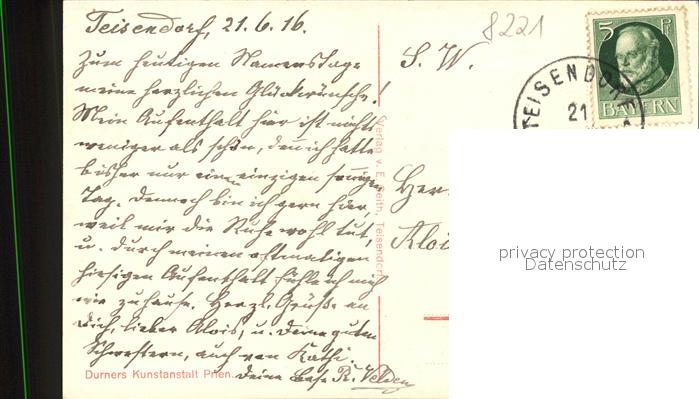 Teisendorf, 21.6.16.
Zum heutigen Namenstage
meine herzlichen Glückwünsche!
Mein Aufenthalt hier ist nichts
weniger als schön, denn ich hatte
bisher nur einen einzigen sonnigen
Tag. Dennoch bin ich gern hier,
weil mir die Ruhe wohl tut,
u. durch meinen oftmaligen
hiesigen Aufenthalt fühle ich mich
wie zuhause. Herzl. Grüße an
Dich, lieber Alois, u. Deine guten
Schwestern, auch von Kathi.
Deine Base R. Velden
Durners Kunstanstalt Prien.
Verlag v. E. Teisendorf
8221
S. W.
Her
Aloi
5 Pf
BAYERN
TEISENDORF
21
privacy protection
Datenschutz